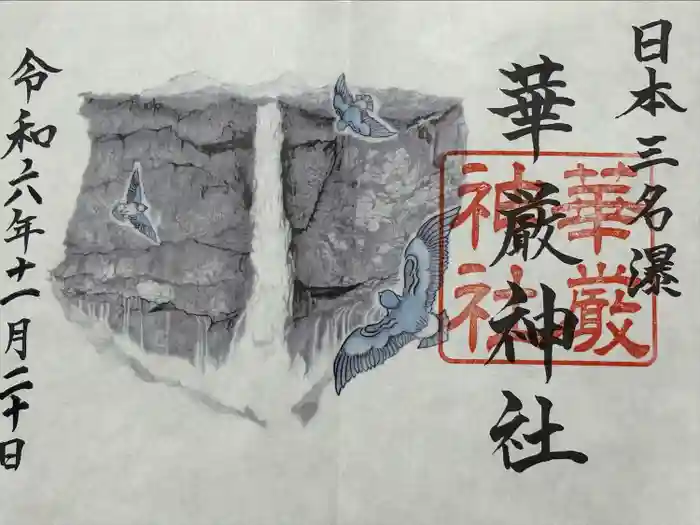 日本三名瀑
華厳神社
華厳
神社
令和六年十一月二十日